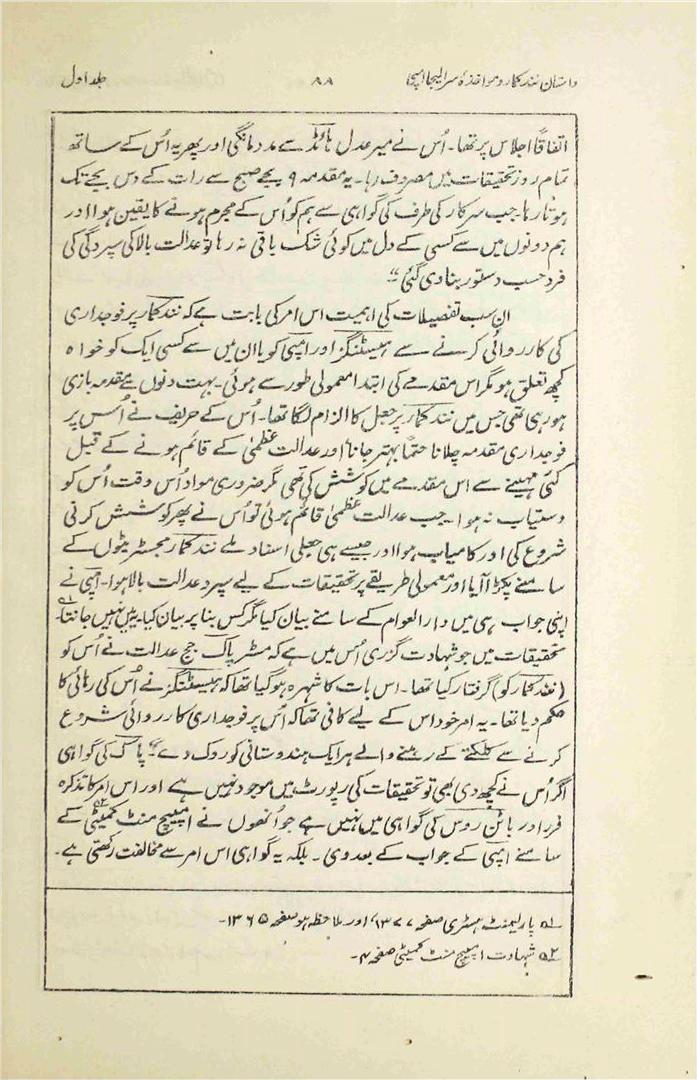 داستان نند کمار و مواخذۂ سر الیجا امپی ۸۸ جلد اول
اتفاقاً اجلاس پر تھا۔ اُس نے میر عدل ہائڈ سے مدد مانگی اور پھر یہ اُس کے ساتھ
تمام روز تحقیقات میں مصروف رہا۔ یہ مقدمہ ۹ بجے صبح سے رات کے دس بجے تک
ہوتا رہا جب سرکار کی طرف کی گواہی سے ہم کو اُس کے مجرم ہونے کا یقین ہوا اور
ہم دونوں میں سے کسی کے دل میں کوئی شک باقی نہ رہا تو عدالت بالا کی سپردگی کی
فرد حسب دستور بنا دی گئی"۔
ان سب تفصیلات کی اہمیت اس امر کی بابت ہے کہ نند کمار پر فوجداری
کی کارروائی کرنے سے ہیسٹنگز اور امپی کو یا ان میں سے کسی ایک کو خواہ
کچھ تعلق ہو مگر اس مقدمے کی ابتدا معمولی طور سے ہوئی۔ بہت دنوں سے مقدمہ بازی
ہو رہی تھی جس میں نند کمار پر جعل کا الزام لگا تھا۔ اُس کے حریف نے اُس پر
فوجداری مقدمہ چلانا حتماً بہتر جانا اور عدالت عظمیٰ کے قائم ہونے کے قبل
کئی مہینے سے اس مقدمے میں کوشش کی تھی مگر ضروری مواد اُس وقت اُس کو
دستیاب نہ ہوا۔ جب عدالت عظمیٰ قائم ہوئی تو اُس نے پھر کوشش کرنی
شروع کی اور کامیاب ہوا اور جیسے ہی جعلی اسناد ملے نند کمار مجسٹریٹوں کے
سامنے پکڑا آیا اور معمولی طریقے پر تحقیقات کے لیے سپرد عدالت بالا ہوا۔ امپی نے
اپنی جواب دہی میں دار العوام کے سامنے بیان کیا مگر کس بنا پر بیان کیا۔ میں نہیں جانتا۔
تحقیقات میں جو شہادت گزری اُس میں ہے کہ مسٹر پاک جج عدالت نے اُس کو
(نند کمار کو) گرفتار کیا تھا۔ اس بات کا شہرہ ہو گیا تھا کہ ہیسٹنگز نے اُس کی رہائی کا
حکم دیا تھا۔ یہ امر خود اس کے لیے کافی تھا کہ اُس پر فوجداری کارروائی شروع
کرنے سے کلکتے کے رہنے والے ہر ایک ہندوستانی کو روک دے"۔ پاک کی گواہی
اگر اُس نے کچھ دی بھی تو تحقیقات کی رپورٹ میں موجود نہیں ہے اور اس امر کا تذکرہ
فرر اور بائن روس کی گواہی میں نہیں ہے جو اُنھوں نے امپیچ منٹ کمیٹی کے
سامنے امپی کے جواب کے بعد دی۔ بلکہ یہ گواہی اس امر سے مخالفت رکھتی ہے۔
۱؎ پارلیمنٹ ہسٹری صفحہ ۱۳۷۷، اور ملاحظہ ہو صفحہ ۱۳۶۵۔
۲؎ شہادت امپیچ منٹ کمیٹی صفحہ ۴۔